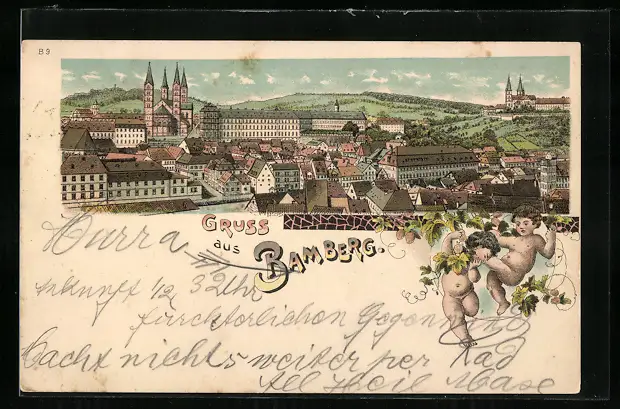 B 9
GRUSS
aus
BAMBERG.
Hurra
Ankunft 1/2 3 Uhr
fürchterlichen Gegenwind
Nacht nichts weiter per Rad
All Heil